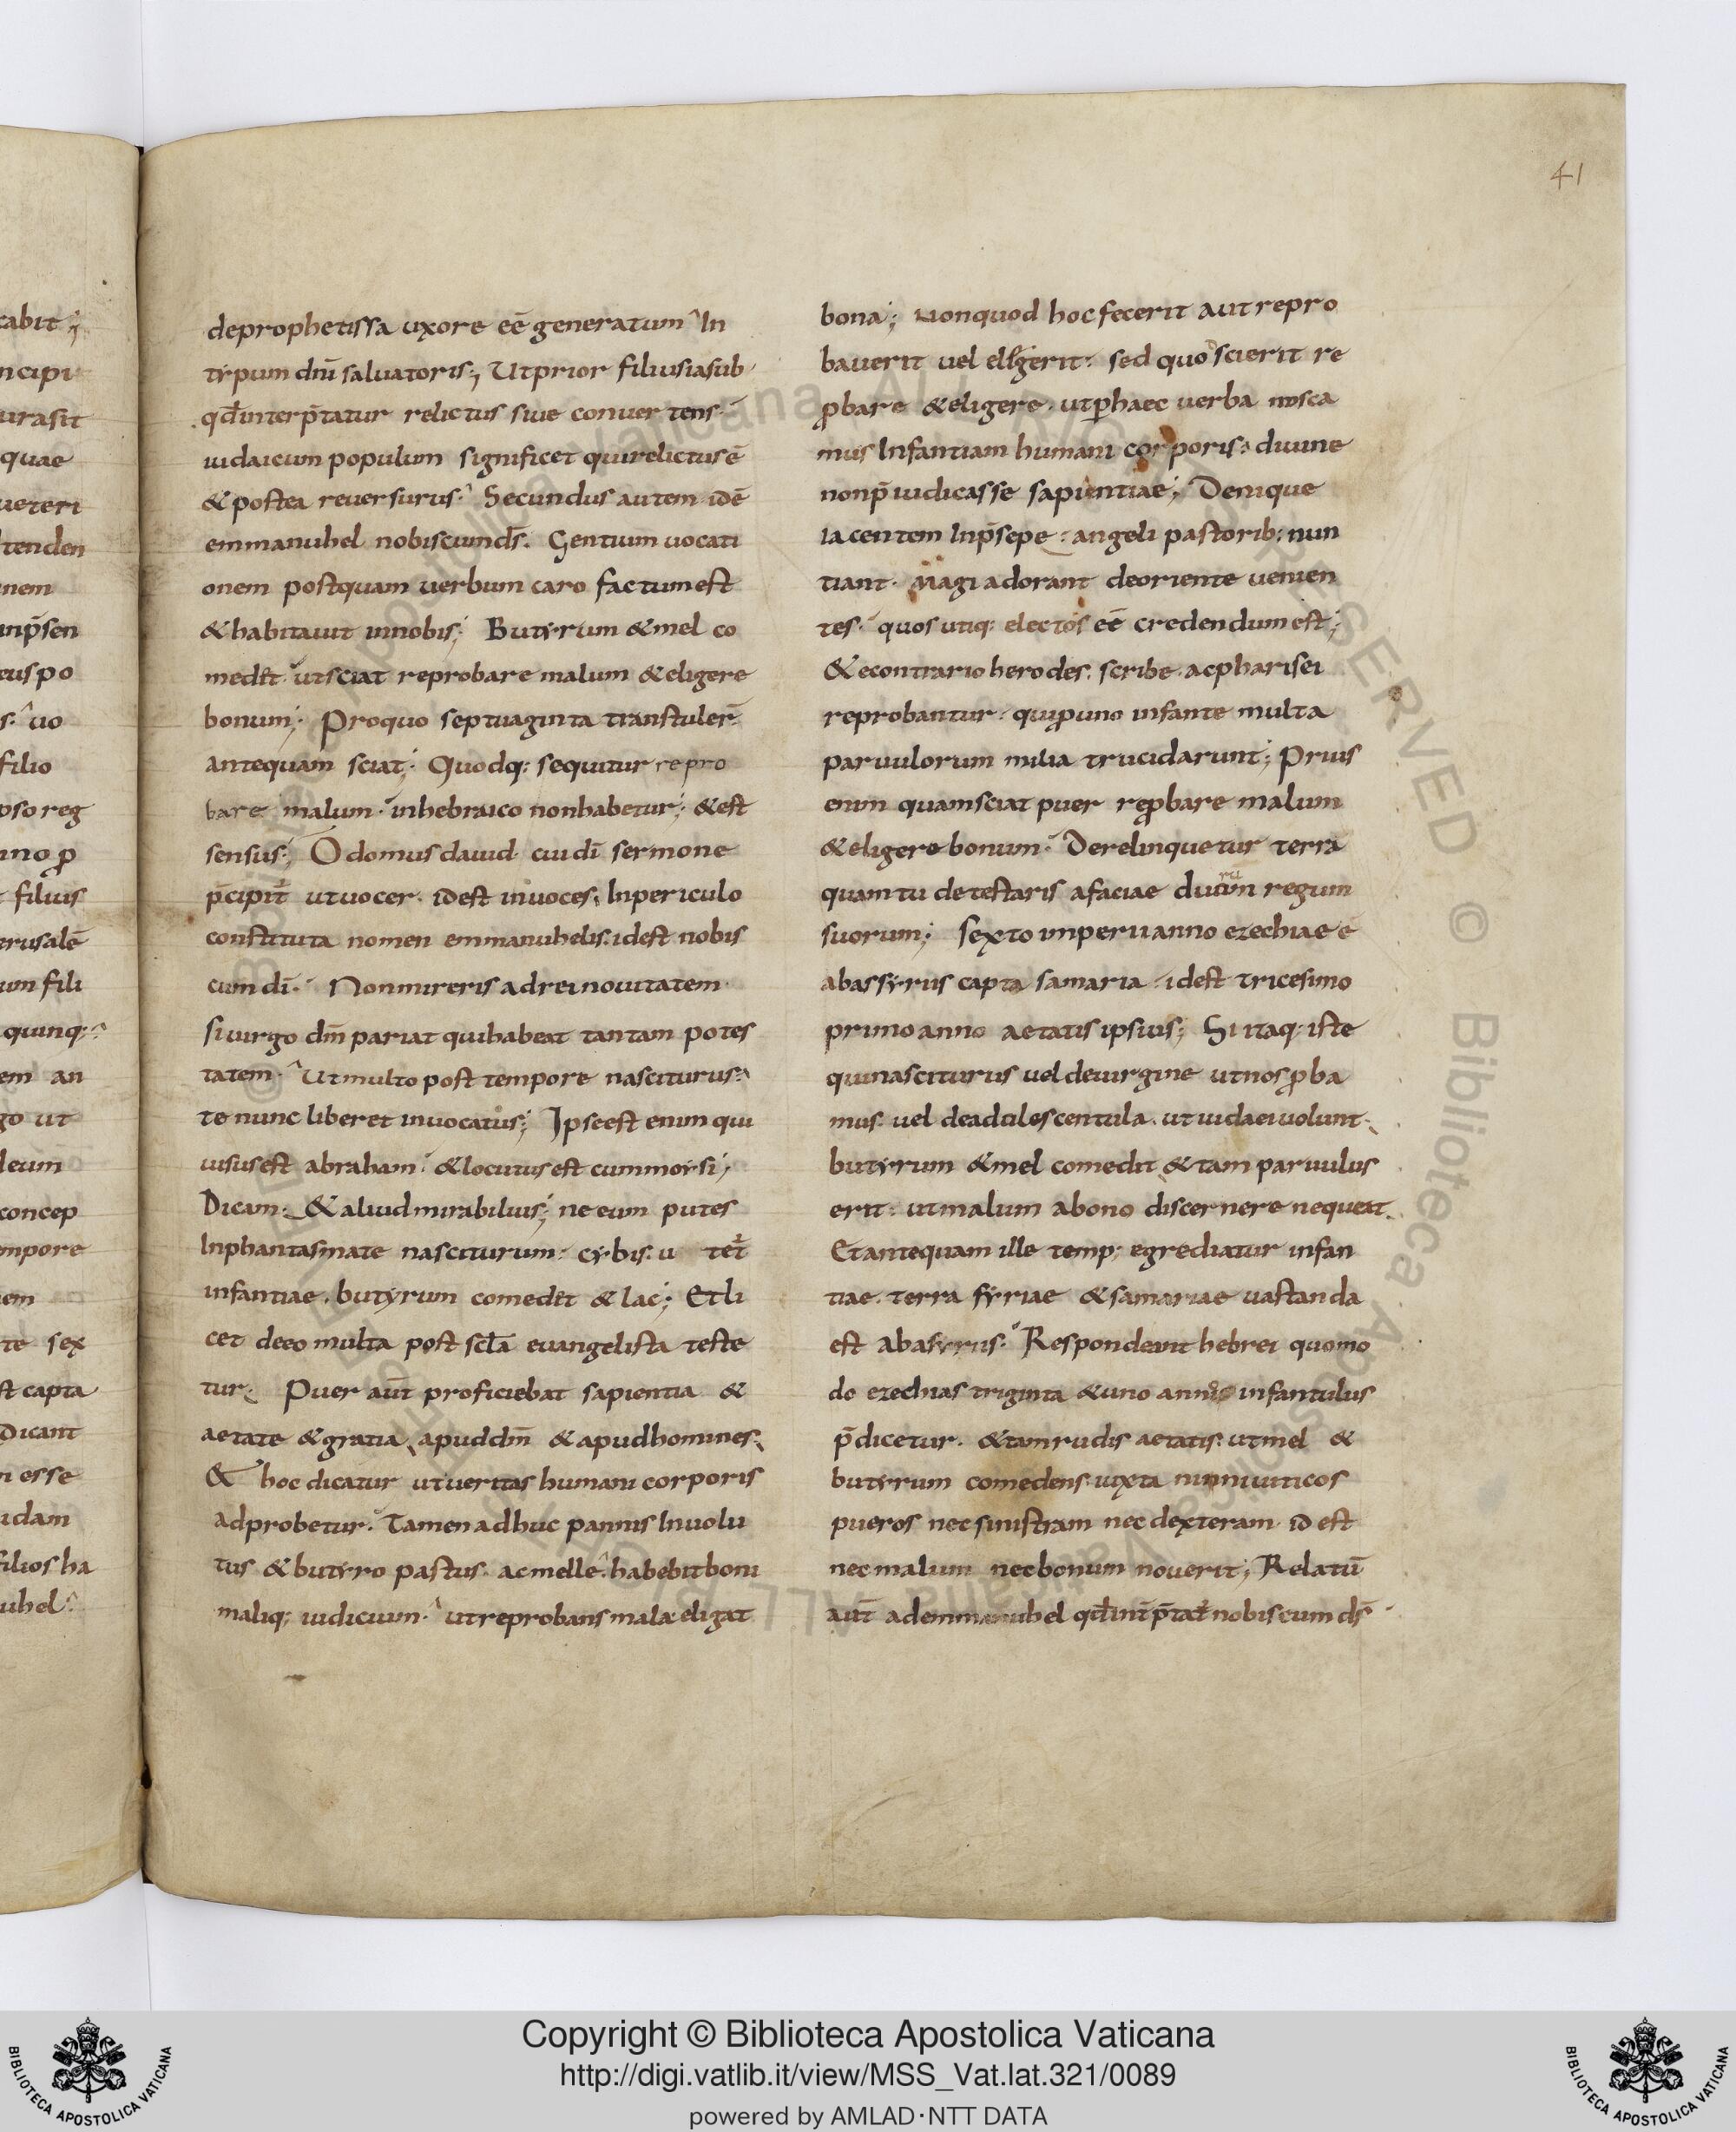 41
deprophetissa uxore eē generatum In
typum dn̄i salvatoris; Utprior filiusiasub
qd̄interp̄tatur relictus sive convertens
iudaicum populum significet quirelictusē
&postea reversurus. Secundus autem idē
emmanuhel nobiscumds̄. Gentium vocati
onem postquam verbum caro factumest
&habitavit innobis; Butyrum &mel co
med&. utsciat reprobare malum &eligere
bonum; Proquo septuaginta transtuler̄
antequam sciat; Quodq: sequitur repro
bare malum. inhebraico nonhabetur; &est
sensus; O domusdavid cuidī sermone
p̄cipit̄ utvocer. idest invoces; Inpericulo
constituta nomen emmanuhelis. idest nobis
cumdī. Nonmireris adreinovitatem
sivirgo dm̄ pariat quihabeat tantam potes
tatem. Utmulto post tempore nasciturus
te nunc liberet invocatus; Ipseest enim qui
visusest abraham. &locutusest cummoysi;
Dicam. &aliudmirabilius; neeum putes
Inphantasmate nasciturum: cybis. u tet̄
infantiae. butyrum comed& & lac; Etli
cet deeo multa post scl̄a evangelista teste
tur. Puer aut̄ proficiebat sapientia &
aetate &gratia, apuddm̄ &apudhomines.
& hoc dicatur utveritas humani corporis
adprobetur. Tamenadhuc pannis Involu
tus &butyro pastus. acmelle. habebitboni
maliq; iudicium. utreprobans mala eligat
bona; Nonquod hocfecerit autrepro
baverit vel elegerit. sed quo scierit re
ꝓbare &eligere. utꝑhaec verba nosca
mus Infantiam humani corporis. divine
nonp̄iudicasse sapientiae; Denique
Iacentem Inp̄sepe. angeli pastorib: nun
tiant. Magi adorant deoriente venien
tes. quos utiq: electos eē credendumest;
&econtrario herodes. scribe. acpharisei
reprobantur. quiꝓuno infante multa
parvulorum milia trucidarunt; Prius
enim quamsciat puer reꝓbare malum
&eligere bonum. Derelinquetur terra
quamtu detestaris afaciae duum rū regum
suorum; Sexto imperiianno ezechiae ē
abassyriis capta samaria. idest tricesimo
primoanno aetatis ipsius; Si itaq: iste
quinasciturus vel devirgine utnosꝓba
mus. vel deadulescentula. utiudaeivolunt.
butyrum &mel comedit &tam parvulus
erit. utmalum abono discernere nequeat.
Etantequam ille temp; egrediatur infan
tiae. terra syriae &samariae vastanda
est abassyriis. Respondeant hebrei quomo
do ezechias triginta &uno anno infantulus
p̄dicetur. &tamrudis aetatis. utmel &
butyrum comedens. iuxta ninnivitcos
pueros necsinistram nec dexteram id est
necmalum necbonum noverit; Relatū
aut̄ ademmanuhel qd̄int̄p̄tat̄ nobiscum ds̄
cabit;
ncipi
urasit
quae
veteri
tenden
nem
inp̄sen
tuspo
s. uo
filio
psoreg
ino ꝓ
filius
erusalē
um fili
quinq:
em an
go ut
leum
concep
mpore
em
te sex
st capta
Dicant
n esse
idam
filiosha
uhel
Copyright © Biblioteca Apostolica Vaticana
http://digi.vatlib.it/view/MSS_Vat.lat.321/0089
powered by AMLAD·NTT DATA
BIBLIOTECA APOSTOLICA VATICANA
BIBLIOTECA APOSTOLICA VATICANA